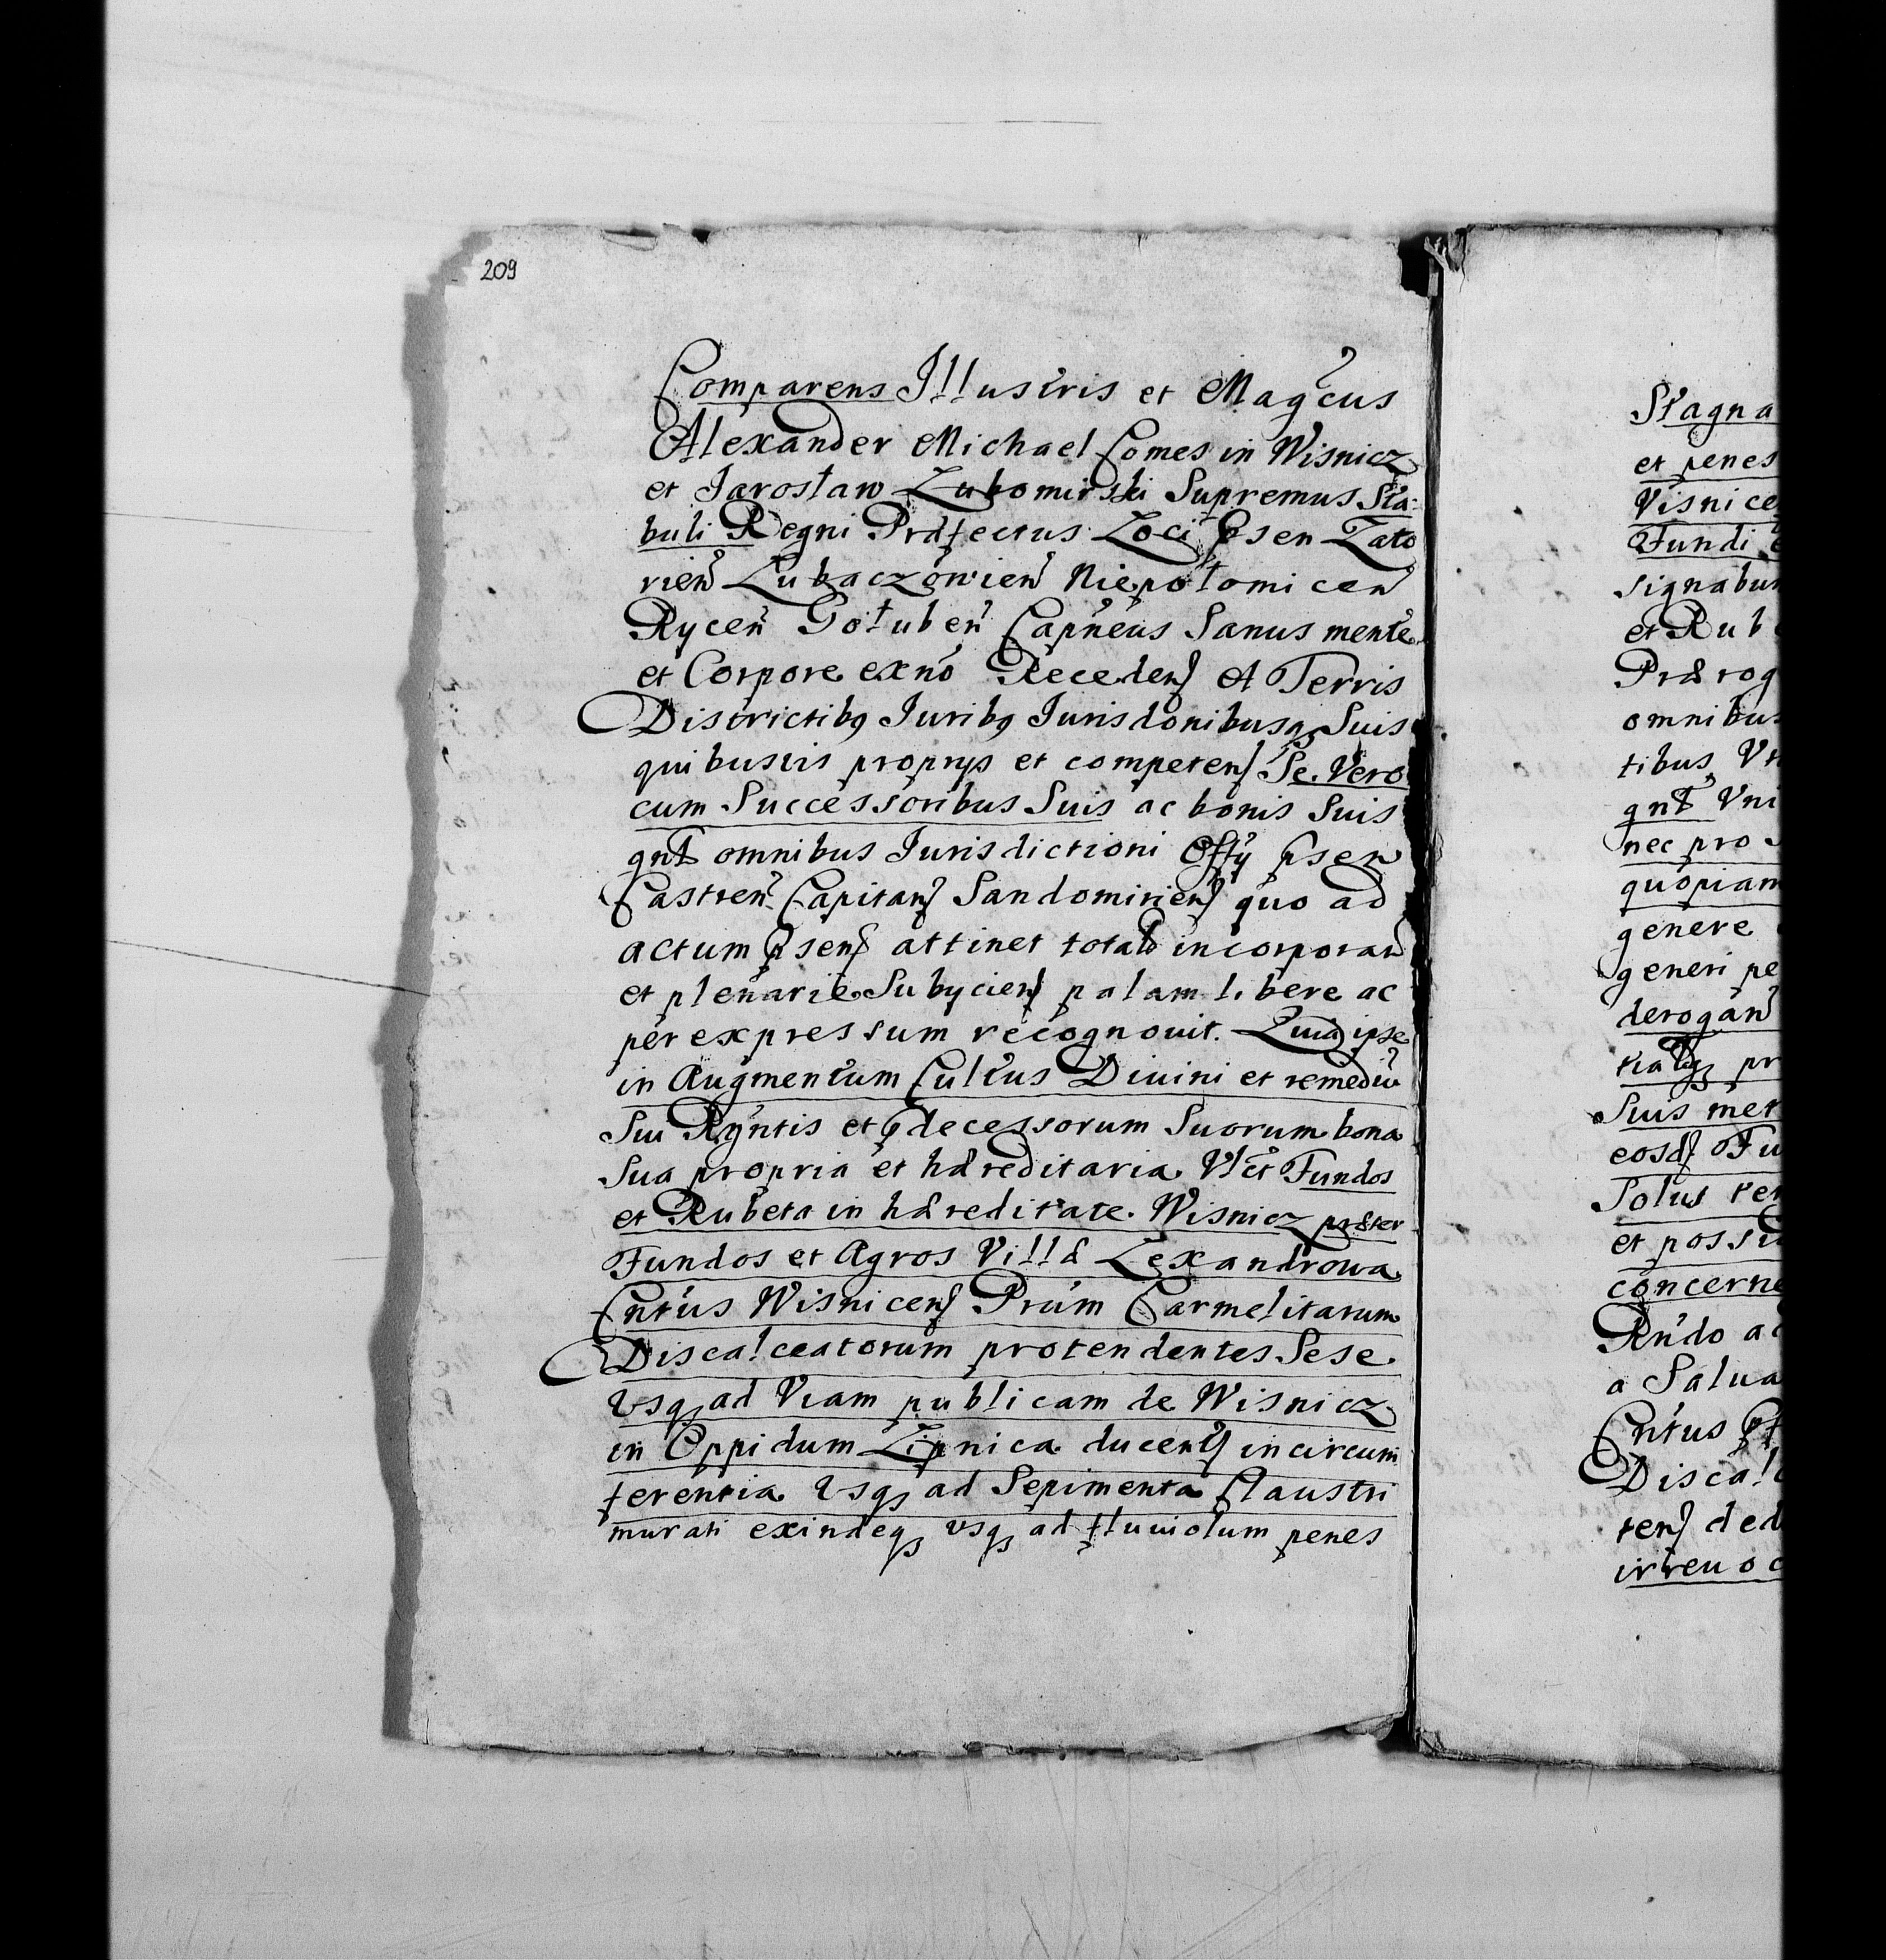 209
Comparens Illustris et Magcus
Alexander Michael Comes in Wisnicz
et Jarosław Lubomirski Supremus Sta:
buli Regni Præfectus Loci Psen Zato
rien Lubaczowien Niepołomicen
Rycen Gołuben Capneus Sanus mente
et Corpore exno Recedens A Terris
Districtibq Juribq Jurisdonibusq Suis
quibusvis proprys et competens Se Vero
cum Successoribus Suis ac bonis Suis
gnt omnibus Jurisdictioni Offy psen
Castren Capitans Sandomiriens quo ad
actum psens attinet totalr incorporan
et plenarie Subyciens palam libere ac
per expressum recognouit. Quia ipse
in Augmentum Cultus Diuini et remediu
Sui Rgntis et pdecessorum Suorum bona
Sua propria et hæreditaria Vlct Fundos
et Rubeta in hæreditate Wisnicz præter
Fundos et Agros Villæ Lexandrowa
Cntus Wisnicens Prum Carmelitarum
Discalceatorum protendentes Sese
Vsq ad Viam publicam de Wisnicz
in Oppidum Lipnica ducents in circum
ferentia Vsq ad Sepimenta Claustri
murati exindeq vsq ad fluuiolum penes
Stagna
et penes
Visnice
Fundi
signabun
et Rub
Prærog
omnibus
tibus
gnt Uni
nec pro
quopiam
genere
generi pe
derogan
pr
Suis met
eosd Fu
Solus
et possi
concerne
Rndo ac
a Salua
Cntus
Discalc
tens ded
irreuoc